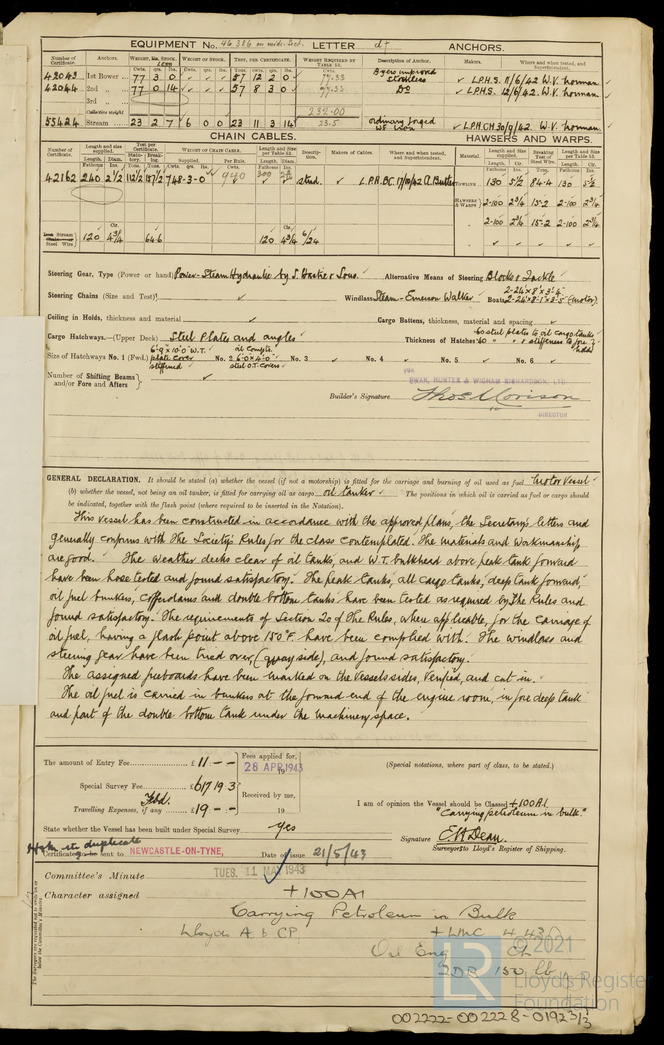 EQUIPMENT No. 46386 on mids. Sect. LETTER d† ANCHORS.
Number of Certificate. ANCHORS. WEIGHT, Ex. STOCK. WEIGHT OF STOCK. TEST, PER CERTIFICATE. WEIGHT REQUIRED BY TABLE 53. Description of Anchor. Makers. Where and when tested, and Superintendent.
Cwts. qrs. lbs. Cwts. qrs. lbs. Tons. Cwts. qrs. lbs. Cwts.
42043 1st Bower ... 77 3 0 ✓ ✓ ✓ 57 12 2 0 77.33 Byers improved stockless ✓ L.P.H.S. 11/6/42 W.V. Norman.
42044 2nd „ ... 77 0 14 ✓ ✓ ✓ 57 8 3 0 77.33 Do ✓ L.P.H.S. 12/6/42. W.V. Norman.
3rd „
Collective weight 232.00
55424 Stream ..... 23 2 7 6 0 0 23 11 3 14 23.5 ordinary forged W.I. iron ✓ L.P.H.CH 30/9/42. W.V. Norman.
CHAIN CABLES. HAWSERS AND WARPS.
Number of Certificate. Length and size supplied. Test per Certificate. WEIGHT OF CHAIN CABLE. Length and Size per Table 53. Description. Makers of Cables. Where and when tested, and Superintendent. Material. Length and size supplied. Breaking Test of Steel Wire. Length and Size per Table 53.
Length. Diam. Statutory. Breaking. Supplied. Per Rule. Length. Diam. Length. Cir. Length. Cir.
Fathoms Ins. Tons. Tons. Fathoms Ins. Fathoms Ins. Tons. Fathoms Ins.
42162 240 2½ 112½ 157½ 748-3-0 940 300 stud. ✓ L.P.H.BC. 17/10/42 A. Butter TOWLINE 130 5½ 84.4 130 5½
HAWSERS & WARPS 2-100 2¾ 15.2 2-100 2¾
2-100 2¾ 15.2 2-100 2¾
Stream Steel Wire 120 4¾ 64.6 120 4¾ 6/24 ✓ ✓ ✓ ✓ ✓
Steering Gear, Type (Power or hand) Power-Steam Hydraulic by J. Hastie & Sons. Alternative Means of Steering Blocks & Tackle
Steering Chains (Size and Test) ✓ Windlass Steam - Emerson Walker Boats 2-26'x8'x3'-6" 2-26'x8'-1"x3'-5" (motor).
Ceiling in Holds, thickness and material ✓ Cargo Battens, thickness, material and spacing ✓
Cargo Hatchways.—(Upper Deck) Steel Plates and angles Thickness of Hatches .60 steel plates to oil cargo tanks .60 „ „ & stiffeners to fore hold
Size of Hatchways No. 1 (Fwd.) 6'-9"x10'-0" W.T. plate cover stiffened No. 2 oil compts. 6'-0"x4'-0" steel O.T. Covers No. 3 ✓ No. 4 ✓ No. 5 ✓ No. 6 ✓
Number of Shifting Beams and/or Fore and Afters ✓
FOR SWAN, HUNTER & WIGHAM RICHARDSON, LTD
Builder's Signature Thos Morison
DIRECTOR
GENERAL DECLARATION. It should be stated (a) whether the vessel (if not a motorship) is fitted for the carriage and burning of oil used as fuel Motor Vessel
(b) whether the vessel, not being an oil tanker, is fitted for carrying oil as cargo oil tanker The positions in which oil is carried as fuel or cargo should
be indicated, together with the flash point (where required to be inserted in the Notation).
This vessel has been constructed in accordance with the approved plans, the Secretary's letters and
generally conforms with the Society's Rules for the class contemplated. The materials and workmanship
are good. The weather decks clear of oil tanks, and W.T. bulkhead above peak tank forward
have been hose tested and found satisfactory. The peak tanks, all cargo tanks, deep tank forward,
oil fuel bunkers, cofferdams and double bottom tanks have been tested as required by the Rules and
found satisfactory. The requirements of Section 20 of the Rules, where applicable, for the carriage of
oil fuel, having a flash point above 150°F. have been complied with. The windlass and
steering gear have been tried over, (quay side), and found satisfactory.
The assigned freeboards have been marked on the Vessels sides, verified, and cut in.
The oil fuel is carried in bunkers at the forward end of the engine room, in fore deep tank
and part of the double bottom tank under the machinery space.
The amount of Entry Fee £ 11 - - Fees applied for, 28 APR 1943 (Special notations, where part of class, to be stated.)
Special Survey Fee £ 617 19. 3
Fbd. Received by me,
Travelling Expenses, if any £ 19 - - 19 I am of opinion the Vessel should be Classed +100A1.
"Carrying petroleum in bulk."
State whether the Vessel has been built under Special Survey Yes
Signature E.H. Dean.
Surveyor to Lloyd's Register of Shipping.
in duplicate
Certificate to be sent to NEWCASTLE-ON-TYNE, Date of issue 21/5/43
Committee's Minute TUES. 11 MAY 1943
Character assigned +100A1
Carrying Petroleum in Bulk
Lloyds A & CP. +LMC 4.43
Oil Eng CL
2DB 150 lb
The Surveyors are requested not to write on or below the Committee's Minute.
LR
© 2021
Lloyd's Register
Foundation
002222-002228-0192 3/3